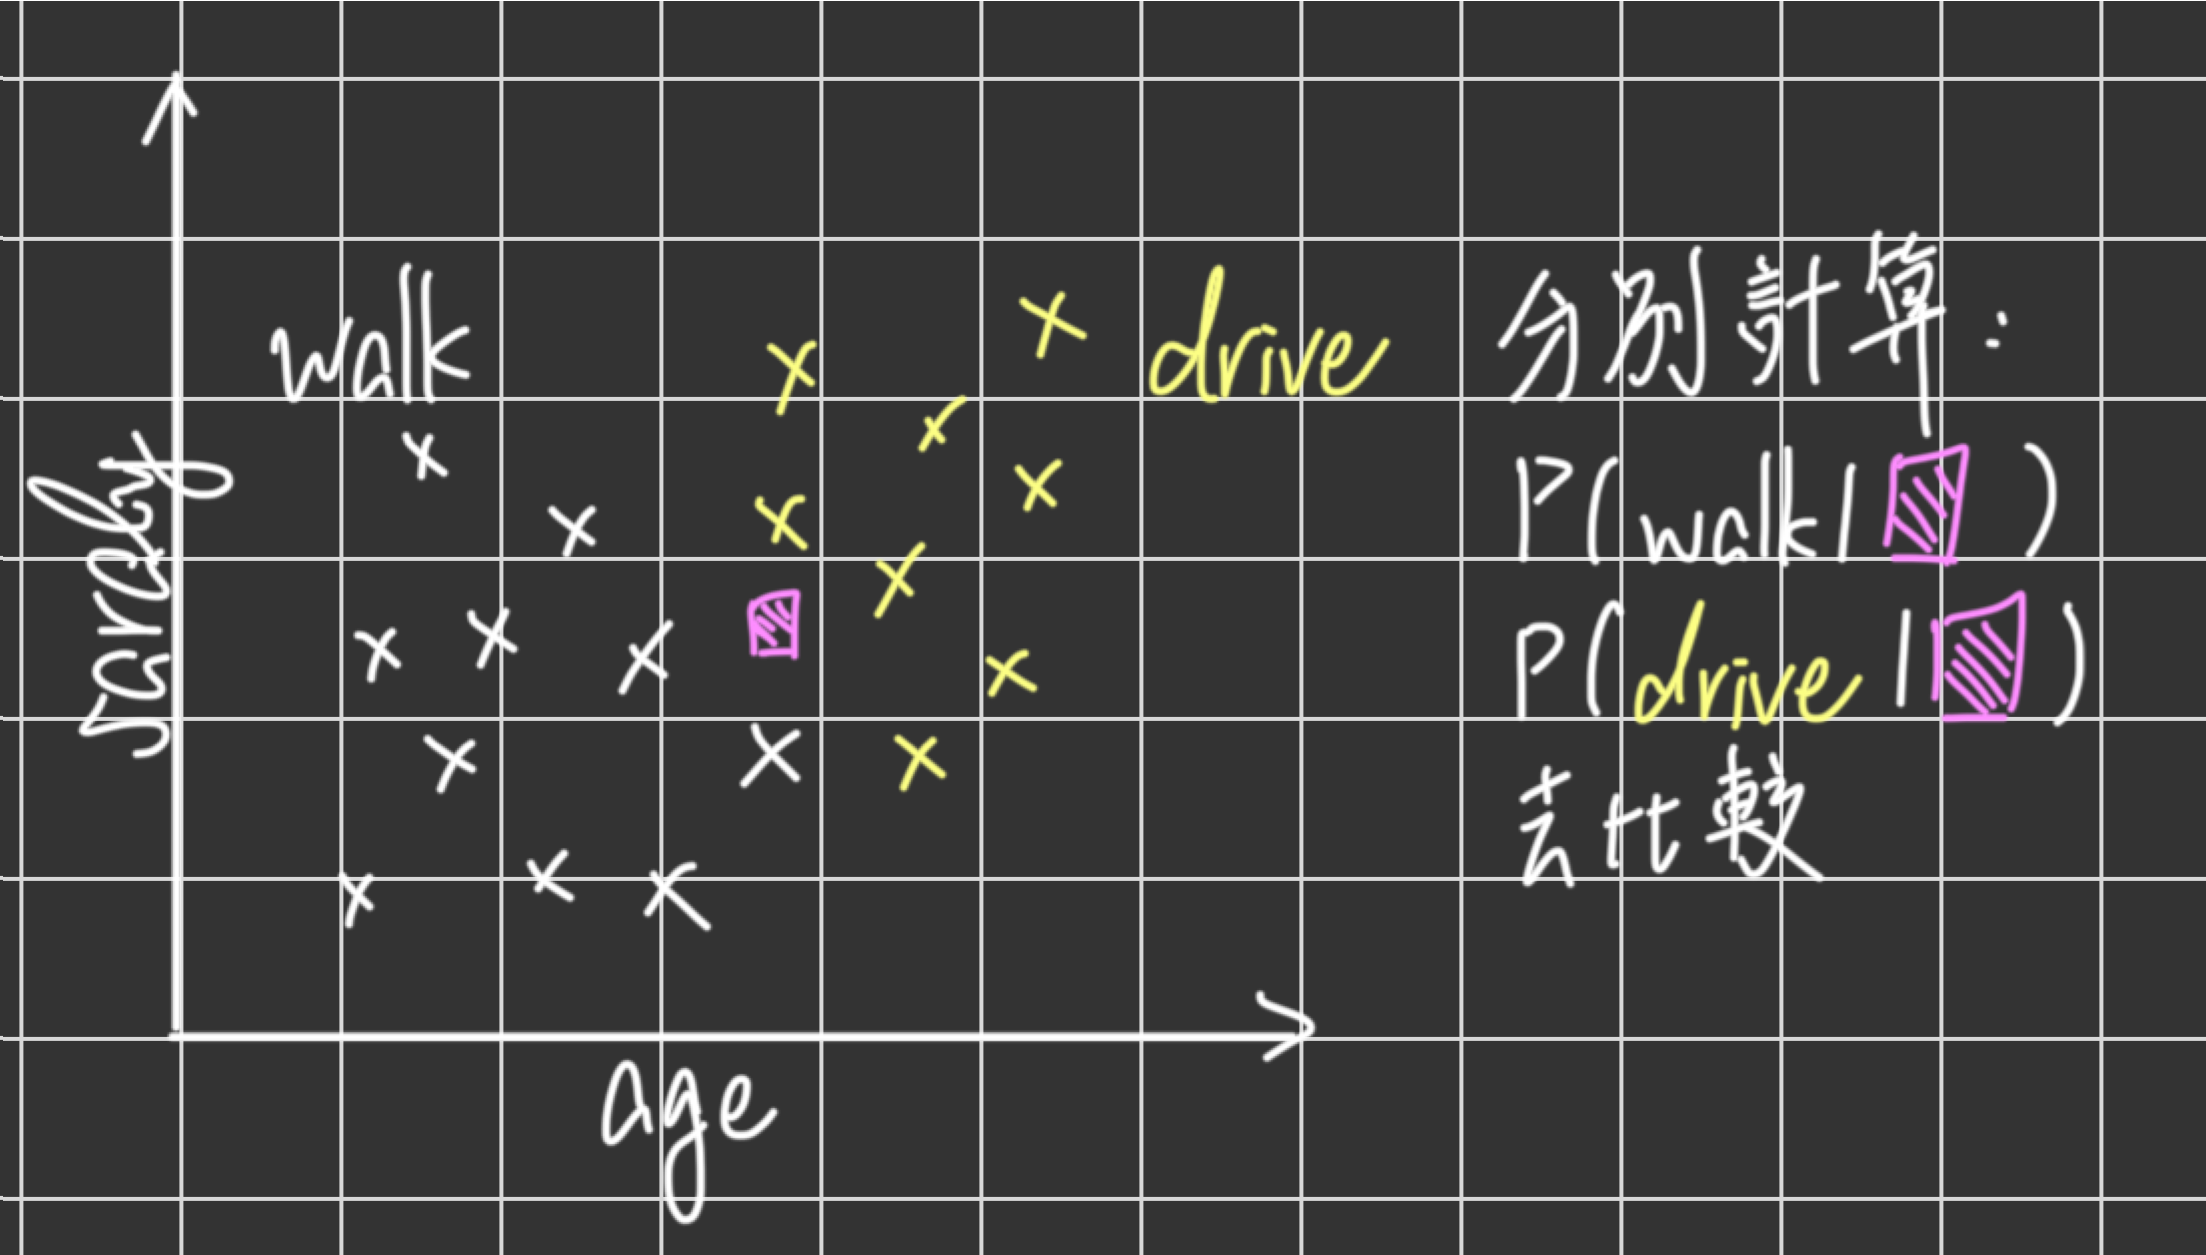 walk
drive
age
分別計算:
P(walk| )
P(drive| )
去比較